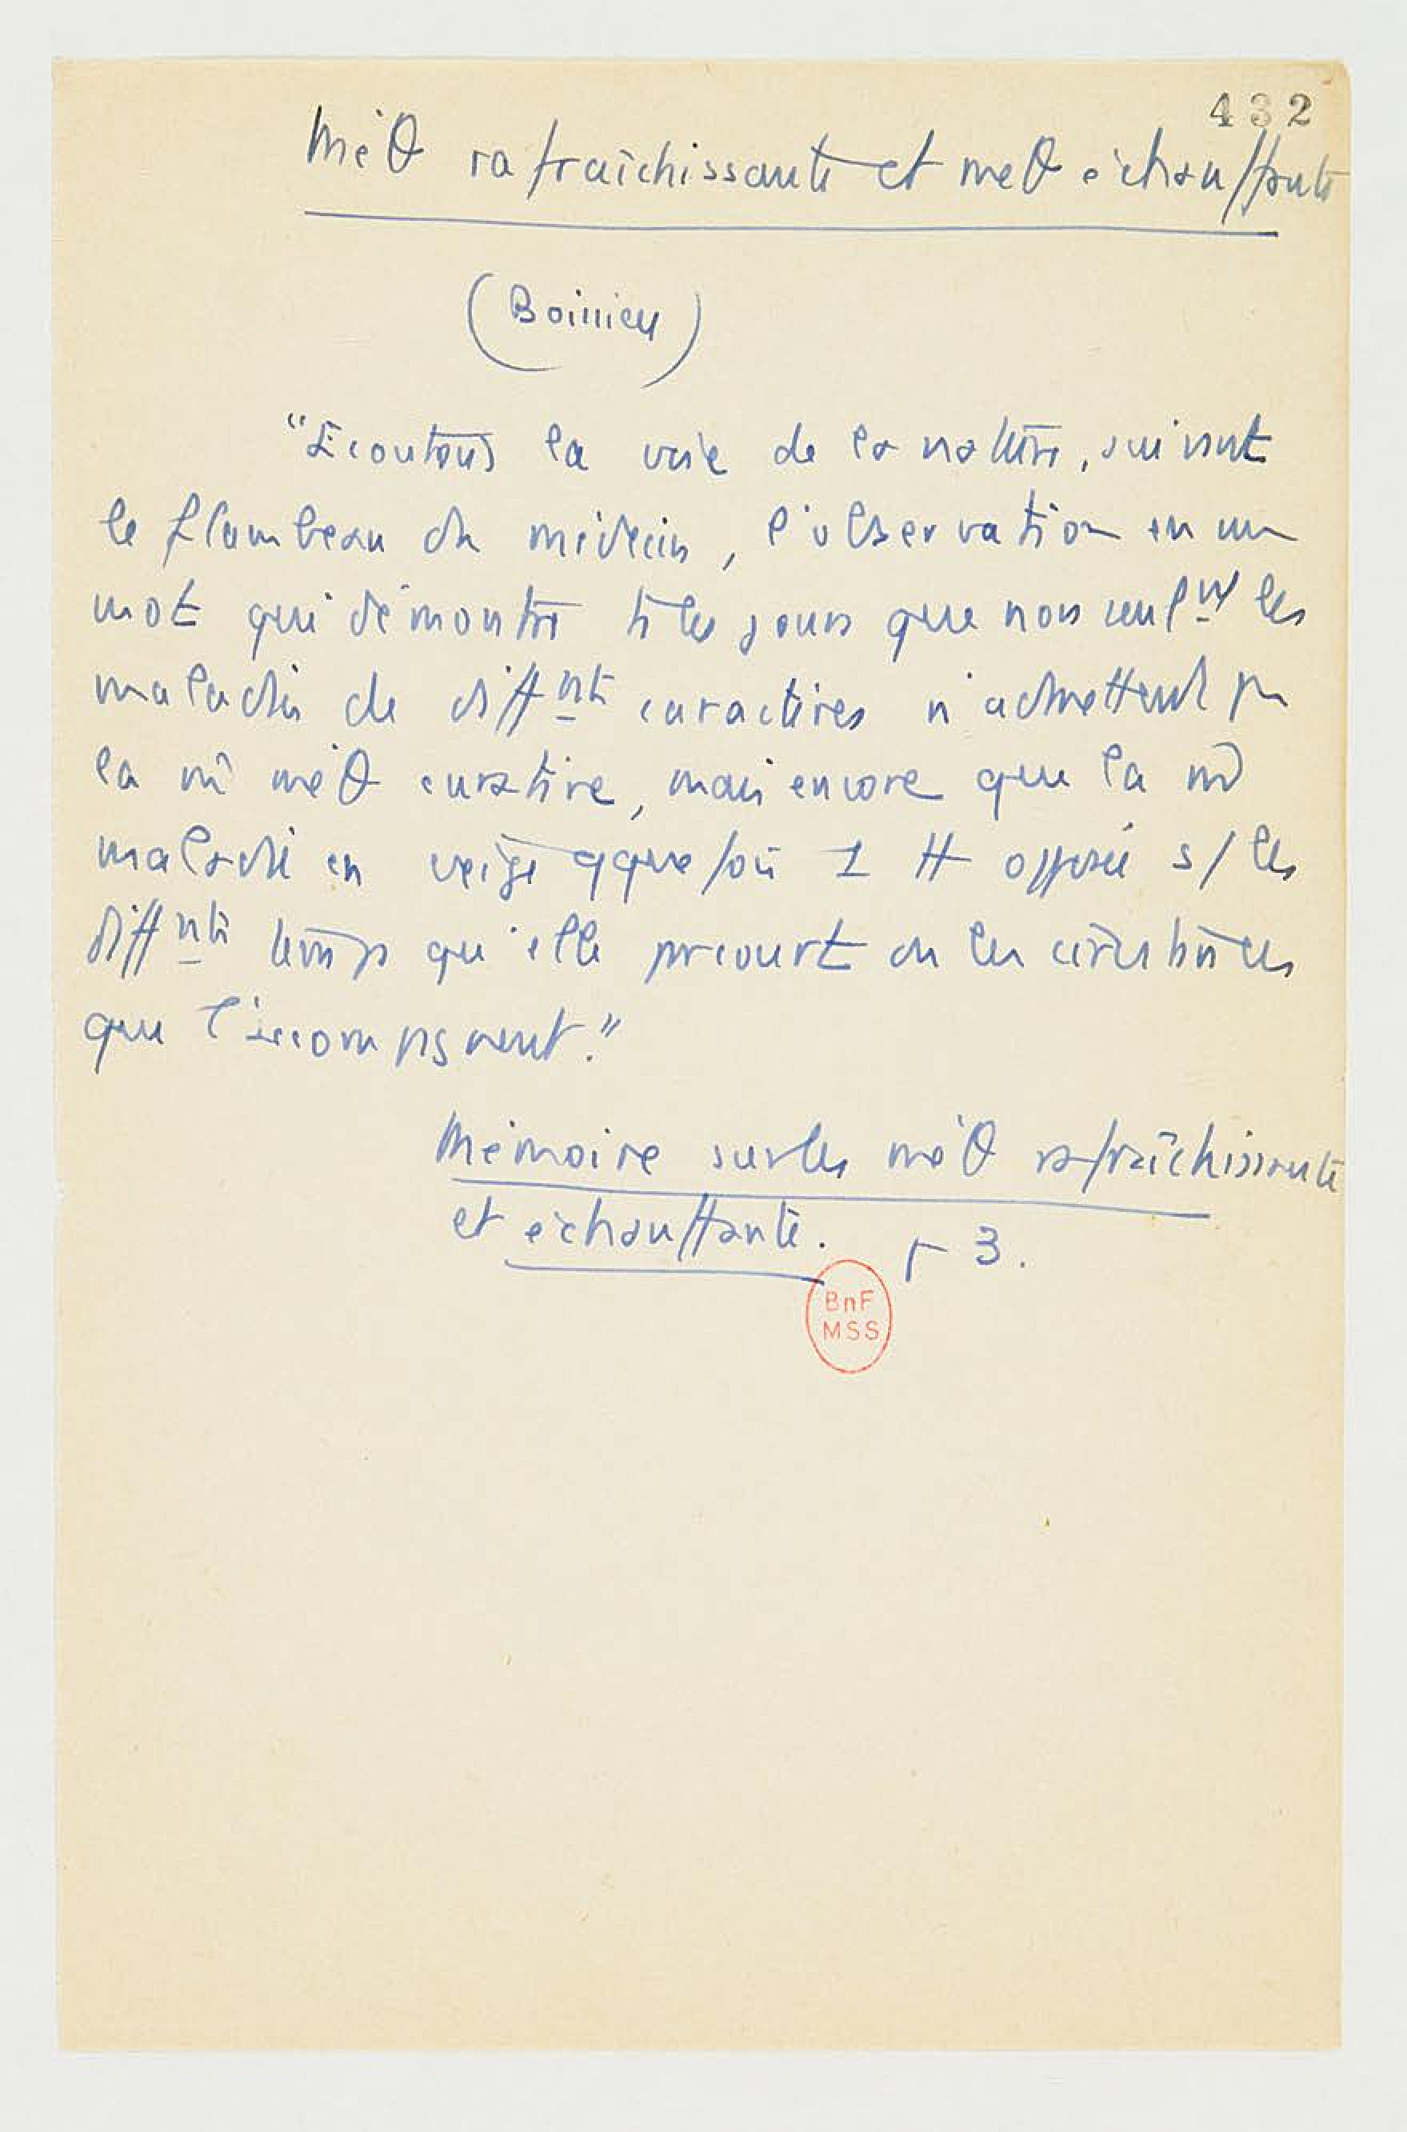 432
MéΘ rafraîchissante et meΘ échauffante
(Boinieu)
"Ecoutons la voix de la nature, suivant
le flambeau du médecin, l'observation en un
mot qui démontre ts les jours que non seulnt les
maladies de diffnts caractères n'admettent pas
la m̂ méΘ curative, mais encore que la m̂
maladie en exige qquefois 1 tt opposée s/ les
diffnts temps qu'elle parcourt ou les circstances
qui l'accompagnent."
Mémoire sur les méΘ rafraîchissante
et échauffante. p 3.
BnF
MSS